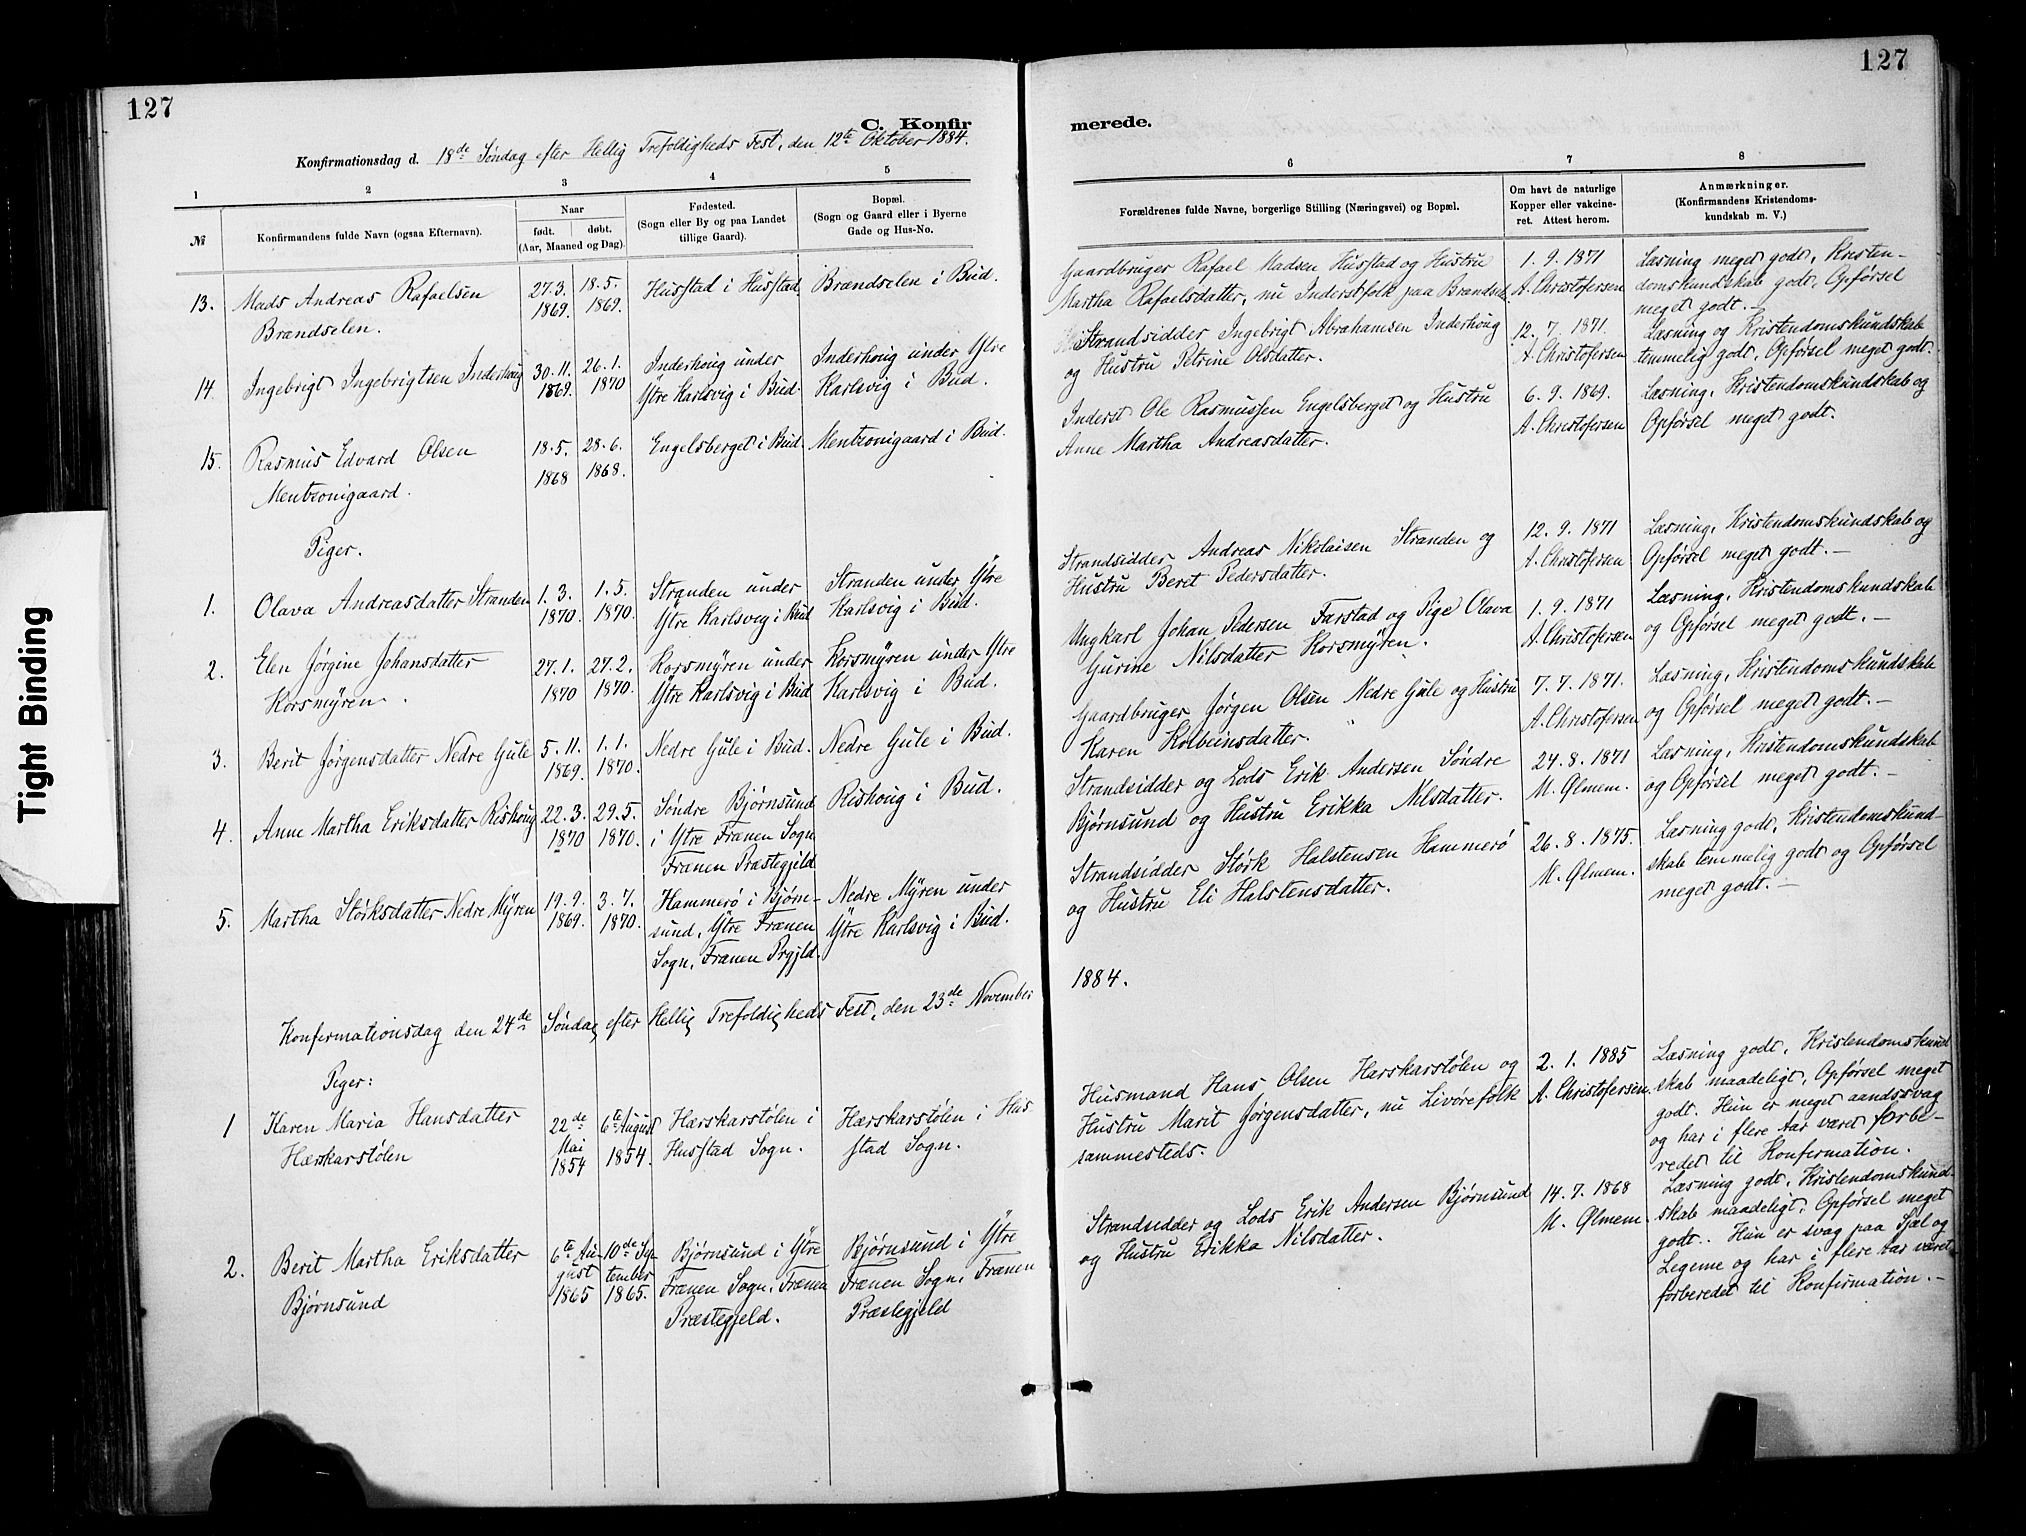 127
127
C. Konfir
merede.
Konfirmationsdag d. 18de Søndag efter Hellig Trefoldigheds Fest, den 12te Oktober 1884.
1
2
3
4
5
6
7
8
№
Konfirmandens fulde Navn (ogsaa Efternavn).
Naar
født.
døbt.
(Aar, Maaned og Dag).
Fødested.
(Sogn eller By og paa Landet
tillige Gaard).
Bopæl.
(Sogn og Gaard eller i Byerne
Gade og Hus-No.
Forældrenes fulde Navne, borgerlige Stilling (Næringsvei) og Bopæl.
Om havt de naturlige
Kopper eller vakcine-
ret. Attest herom.
Anmærkninger.
(Konfirmandens Kristendoms-
kundskab m. V.)
13.
Mads Andreas Rafaelsen
Brændselen.
27.3.
1869.
18.5.
1869.
Husstad i Husstad
Brændselen i Bud.
Gaardbruger Rafael Madsen Husstad og Hustru
Martha Rafaelsdatter, nu Inderstfolk paa Brændsel.
1.9.1871
A. Christofersen
Læsning meget godt, Kristen-
domskundskab godt, Opførsel
meget godt.-
14.
Ingebrigt Ingebrigtsen Inderhoug
30.11.
1869.
26.1.
1870
Inderhoug under
Ytre Karlsvig i Bud.
Inderhoug under Ytre
Karlsvig i Bud.
Strandsidder Ingebrigt Abrahamsen Inderhoug
og Hustru Petrine Olsdatter.
12.7.1871.
A. Christofersen
Læsning og Kristendomskundskab
temmelig godt, Opførsel meget godt.
15.
Rasmus Edvard Olsen
Mentzonigaard.
18.5.
1868
28.6.
1868.
Engelsberget i Bud
Mentzonigaard i Bud.
Inderst Ole Rasmussen Engelsberget og Hustru
Anne Martha Andreasdatter.
6.9.1869.
A. Christofersen
Læsning, Kristendomskundskab og
Opførsel meget godt.
Piger.
1.
Olava Andreasdatter Stranden
1.3.
1870.
1.5.
1870.
Stranden under
Ytre Karlsvig i Bud
Stranden under Ytre
Karlsvig i Bud.
Strandsidder Andreas Nikolaisen Stranden og
Hustru Beret Pedersdatter.
12.9.1871
A. Christofersen
Læsning, Kristendomskundskab og
Opførsel meget godt.-
2.
Elen Jørgine Johansdatter
Korsmyren.
27.1.
1870
27.2.
1870.
Korsmyren under
Ytre Karlsvig i Bud
Korsmyren under Ytre
Karlsvig i Bud.
Ungkarl Johan Pedersen Farstad og Pige Olava
Gurine Nilsdatter Korsmyren.
1.9.1871
A. Christofersen
Læsning, Kristendomskundskab
og Opførsel meget godt.-
3.
Berit Jørgensdatter Nedre Gule
5.11.
1869.
1.1.
1870.
Nedre Gule i Bud.
Nedre Gule i Bud.
Gaardbruger Jørgen Olsen Nedre Gule og Hustru
Karen Kolbeinsdatter.
7.7.1871.
A. Christofersen
Læsning, Kristendomskundskab
og Opførsel meget godt.-
4.
Anne Martha Eriksdatter Rishoug
22.3.
1870
29.5.
1870.
Søndre Bjørnsund
i Ytre Frænen Sogn
Frænen Præstegjeld
Rishoug i Bud.
Strandsidder og Lods Erik Andersen Søndre
Bjørnsund og Hustru Erikka Nilsdatter.
24.8.1871
M. Glmem.
Læsning, Kristendomskundskab
og Opførsel meget godt.-
5.
Martha Størksdatter Nedre Myren
19.9.
1869.
3.7.
1870.
Hammerø i Bjørn-
sund, Ytre Frænen
Sogn, Frænen Prgjld.
Nedre Myren under
Ytre Karlsvig i Bud.
Strandsidder Størk Halstensen Hammerø
og Hustru Eli Halstensdatter.
26.8.1875.
M. Glmem.
Læsning godt, Kristendomskund-
skab temmelig godt og Opførsel
meget godt.-
Konfirmationsdag den 24de Søndag efter Hellig Trefoldigheds Fest, den 23de November 1884.
Piger:
1
Karen Maria Hansdatter
Hærskarstølen
22de
Mai
1854
6te August
1854.
Hærskarstølen i
Husstad Sogn.
Hærskarstølen i Hus
stad Sogn.
Husmand Hans Olsen Hærskarstølen og
Hustru Marit Jørgensdatter, nu Livørefolk
sammesteds.
2.1.1885
A. Christofersen.
Læsning godt, Kristendomskund
skab maadeligt, Opførsel meget
godt. Hun er meget aandssvag
og har i flere Aar været forbe-
redet til Konfirmation.
2.
Berit Martha Eriksdatter
Bjørnsund
6te Au-
gust
1865
10de Sep
tember
1865.
Bjørnsund i Ytre
Frænen Sogn, Frænen
Præstegjeld.
Bjørnsund i Ytre
Frænen Sogn, Frænen
Præstegjeld
Strandsidder og Lods Erik Andersen Bjørnsund
og Hustru Erikka Nilsdatter.
14.7.1868
M. Glmem.
Læsning godt, Kristendomskund-
skab maadeligt, Opførsel meget
godt. Hun er svag paa Sjæl og
Legeme og har i flere Aar været
forberedet til Konfirmation.-
Tight Binding